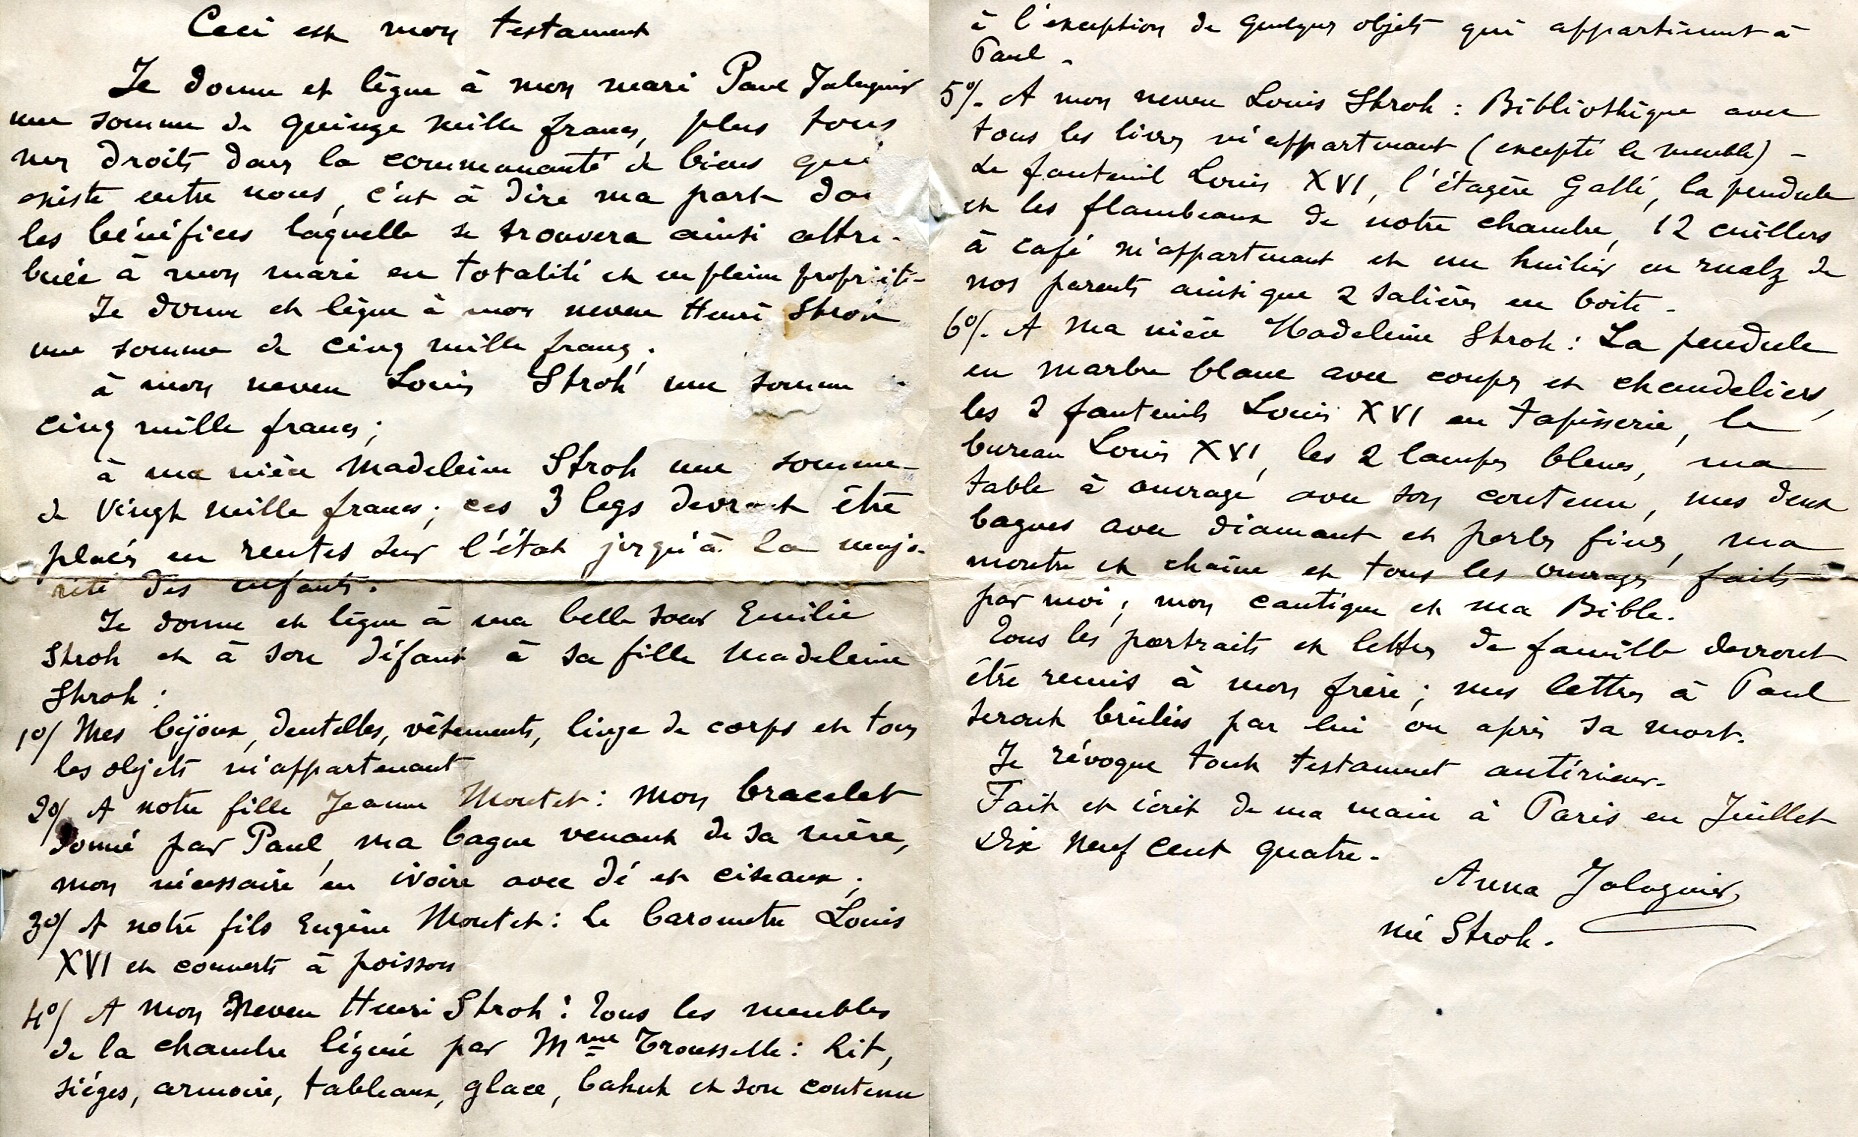 Ceci est mon testament
Je donne et lègue à mon mari Paul Jalaguier
une somme de quinze mille francs, plus tous
mes droits dans la communauté de biens qui
existe entre nous, c'est à dire ma part dans
les bénéfices laquelle se trouvera ainsi attri-
buée à mon mari en totalité et en pleine propriété-
Je donne et lègue à mon neveu Henri Stroh
une somme de cinq mille francs;
à mon neveu Louis Stroh une somme
cinq mille francs;
à ma nièce Madeleine Stroh une somme
de vingt mille francs; ces 3 legs devront être
placés en rentes sur l'état jusqu'à la majo-
rité des enfants.
Je donne et lègue à ma belle soeur Emilie
Stroh et à son défaut à sa fille Madeleine
Stroh:
1o/ Mes bijoux, dentelles, vêtements, linge de corps et tous
les objets m'appartenant
2o/ A notre fille Jeanne Moutet: mon bracelet
donné par Paul, ma bague venant de sa mère,
mon nécessaire en ivoire avec dé et ciseaux;
3o/ A notre fils Eugène Moutet: Le barometre Louis
XVI et couverts à poisson
4o/ A mon neveu Henri Stroh: Tous les meubles
de la chambre léguée par Mme Trousselle: Lit,
sièges, armoire, tableaux, glace, bahut et son contenu
à l'exception de quelques objets qui appartiennent à
Paul.
5o/. A mon neveu Louis Stroh: Bibliothèque avec
tous les livres m'appartenant (excepté le meuble) -
Le fauteuil Louis XVI, l'étagère Gallé, la pendule
et les flambeaux de notre chambre, 12 cuillers
à café m'appartenant et un huilier en rualz de
nos parents ainsi que 2 salières en boite.
6o/. A ma nièce Madeleine Stroh: La pendule
en marbre blanc avec coupes et chandeliers,
les 2 fauteuils Louis XVI en tapisserie, le
bureau Louis XVI, les 2 lampes bleues, ma
table à ouvrage avec son contenu, mes deux
bagues avec diamant et perles fines, ma
montre et chaîne et tous les ouvrages faits
par moi; mon cantique et ma Bible.
Tous les portraits et lettres de famille devront
être remis à mon frère; mes lettres à Paul
seront brûlées par lui ou après sa mort.
Je révoque tout testament antérieur.
Fait et écrit de ma main à Paris en Juillet
Dix Neuf cent quatre.
Anna Jalaguier
née Stroh.